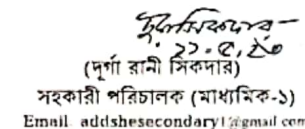 ২১.৫.২০
(দূর্গা রানী সিকদার)
সহকারী পরিচালক (মাধ্যমিক-১)
Email addshesecondary1@gmail.com